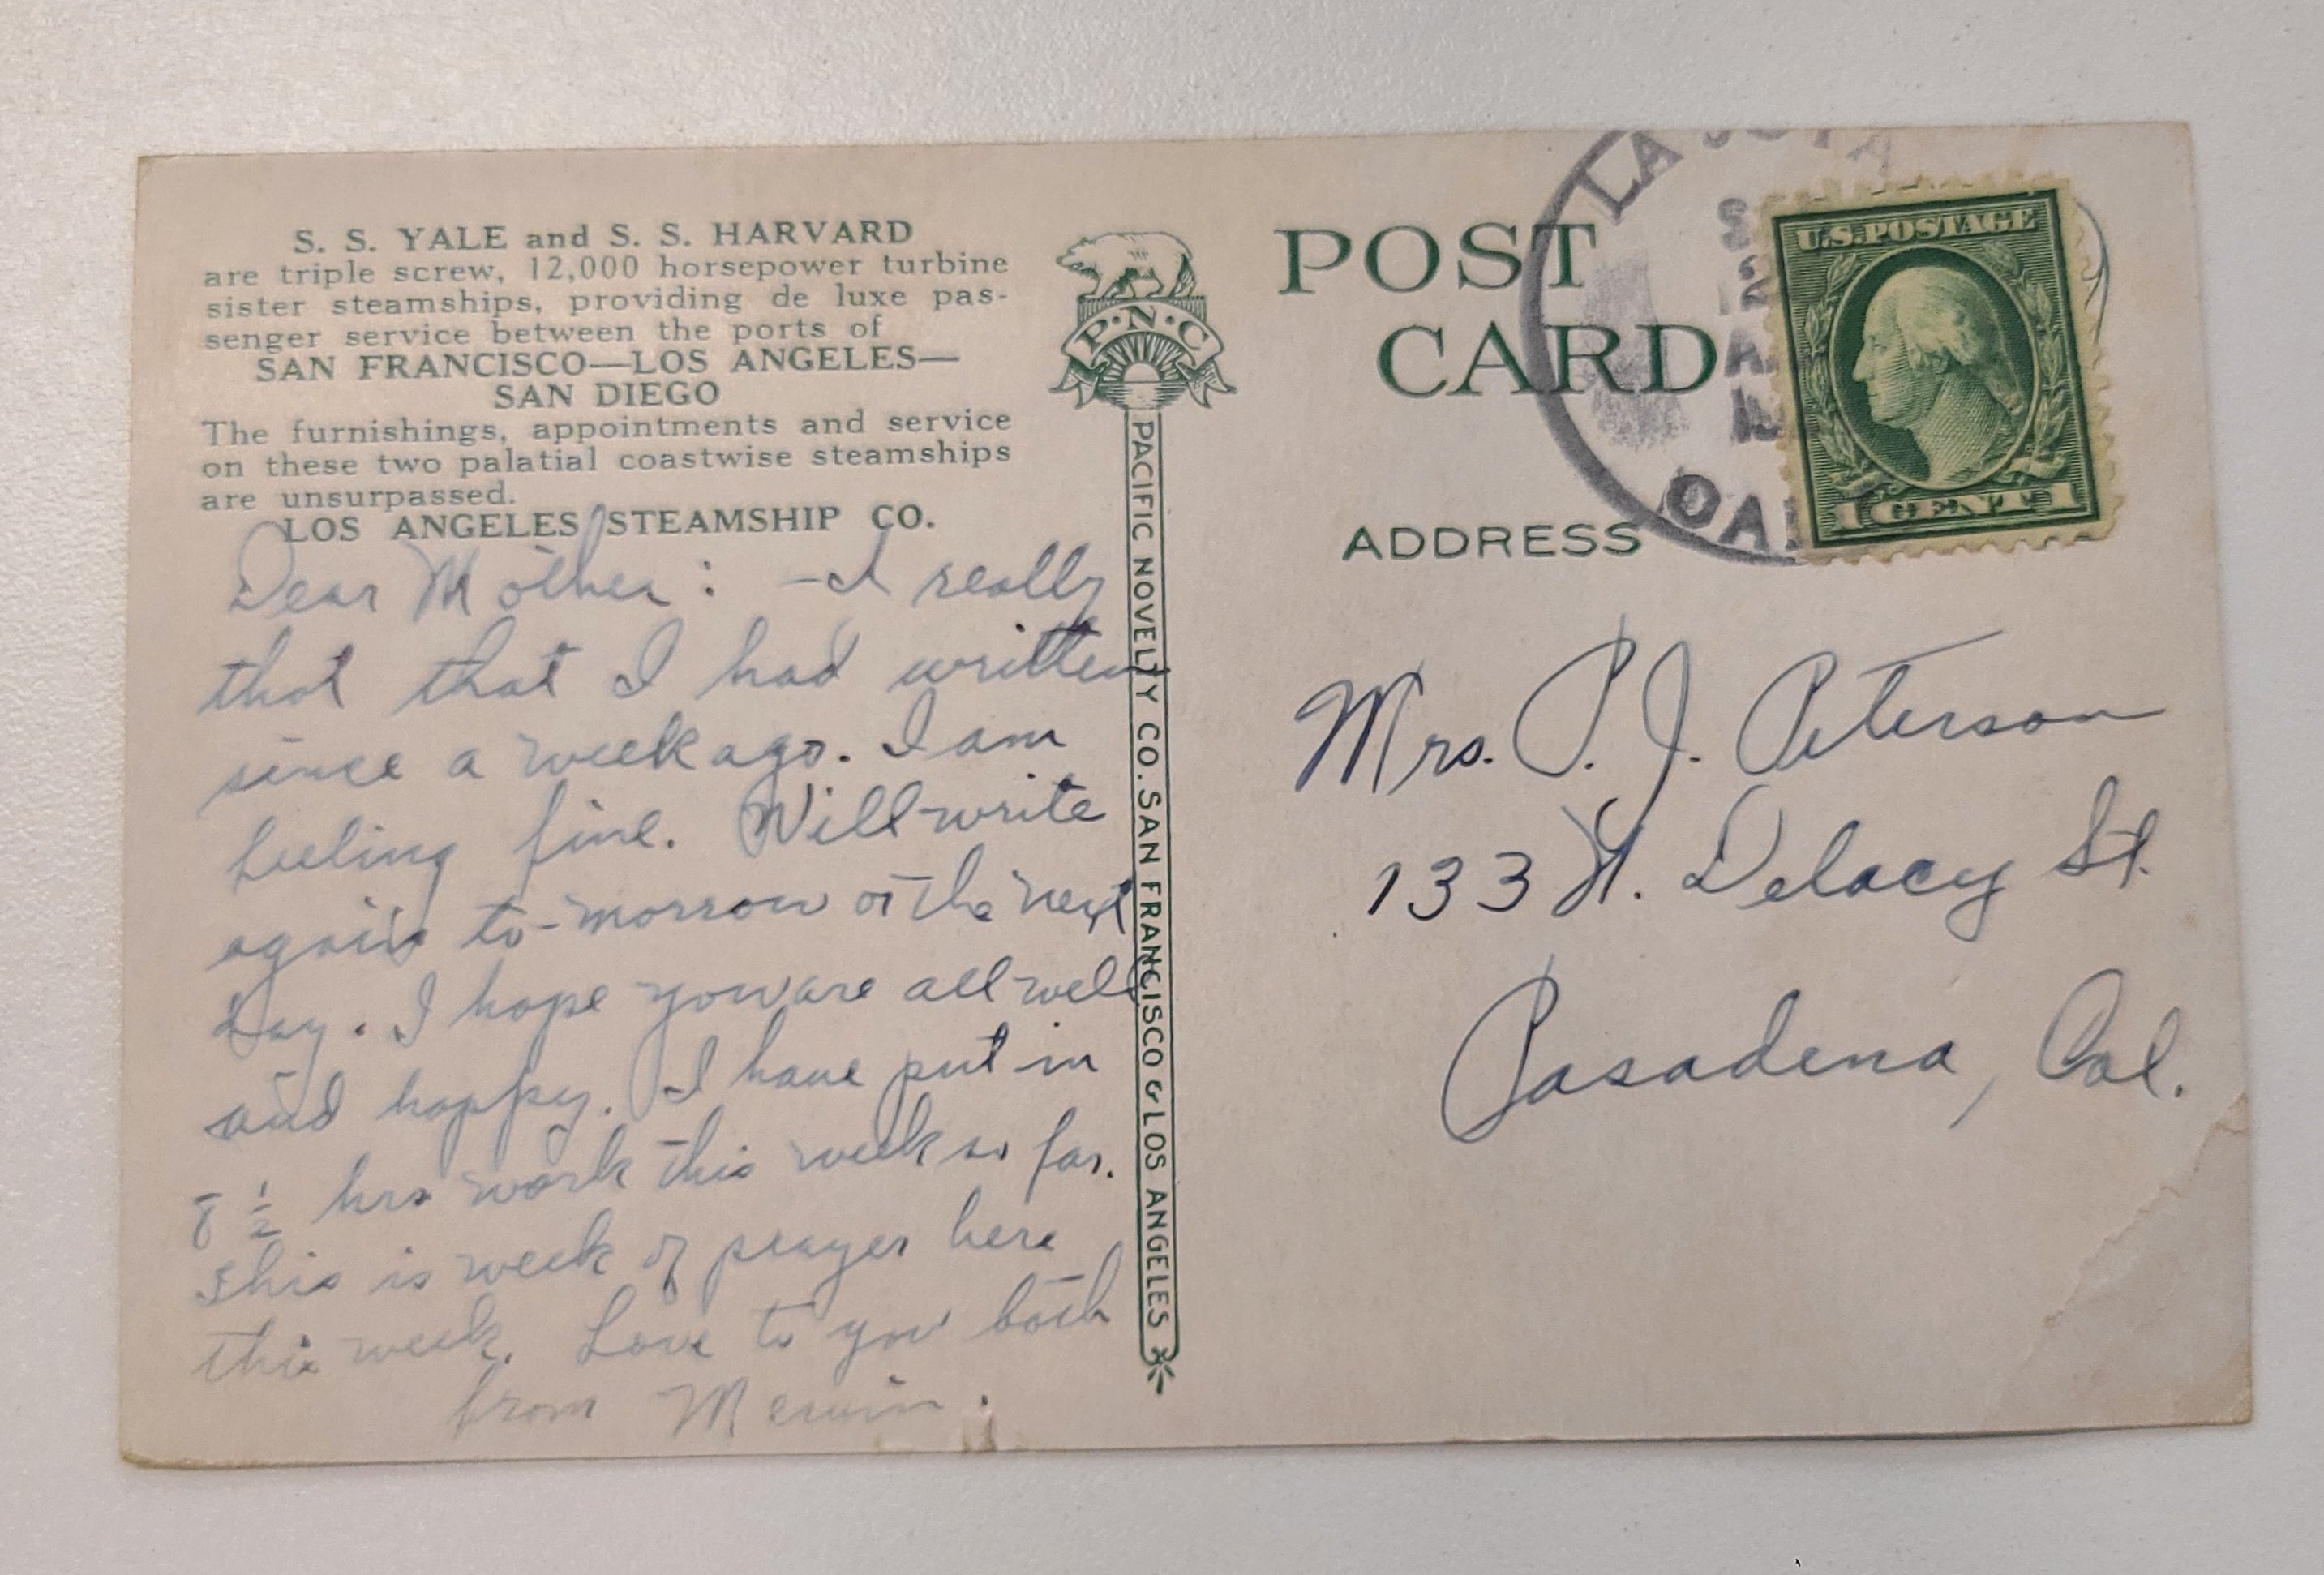 S. S. YALE and S. S. HARVARD
are triple screw, 12,000 horsepower turbine
sister steamships, providing de luxe pas-
senger service between the ports of
SAN FRANCISCO—LOS ANGELES—
SAN DIEGO
The furnishings, appointments and service
on these two palatial coastwise steamships
are unsurpassed.
LOS ANGELES STEAMSHIP CO.
Dear Mother: - I really
that that I had written
since a week ago. I am
feeling fine. Will write
again to-morrow or the next
day. I hope you are all well
and happy. I have put in
8 1/2 hrs work this week so far.
This is week of prayer here
this week. Love to you both
from Merwin.
P·N·C
PACIFIC NOVELTY CO. SAN FRANCISCO & LOS ANGELES
POST
CARD
ADDRESS
LA
U.S.POSTAGE
1 CENT 1
Mrs. P. J. Peterson
133 N. Delacy St.
Pasadena, Cal.